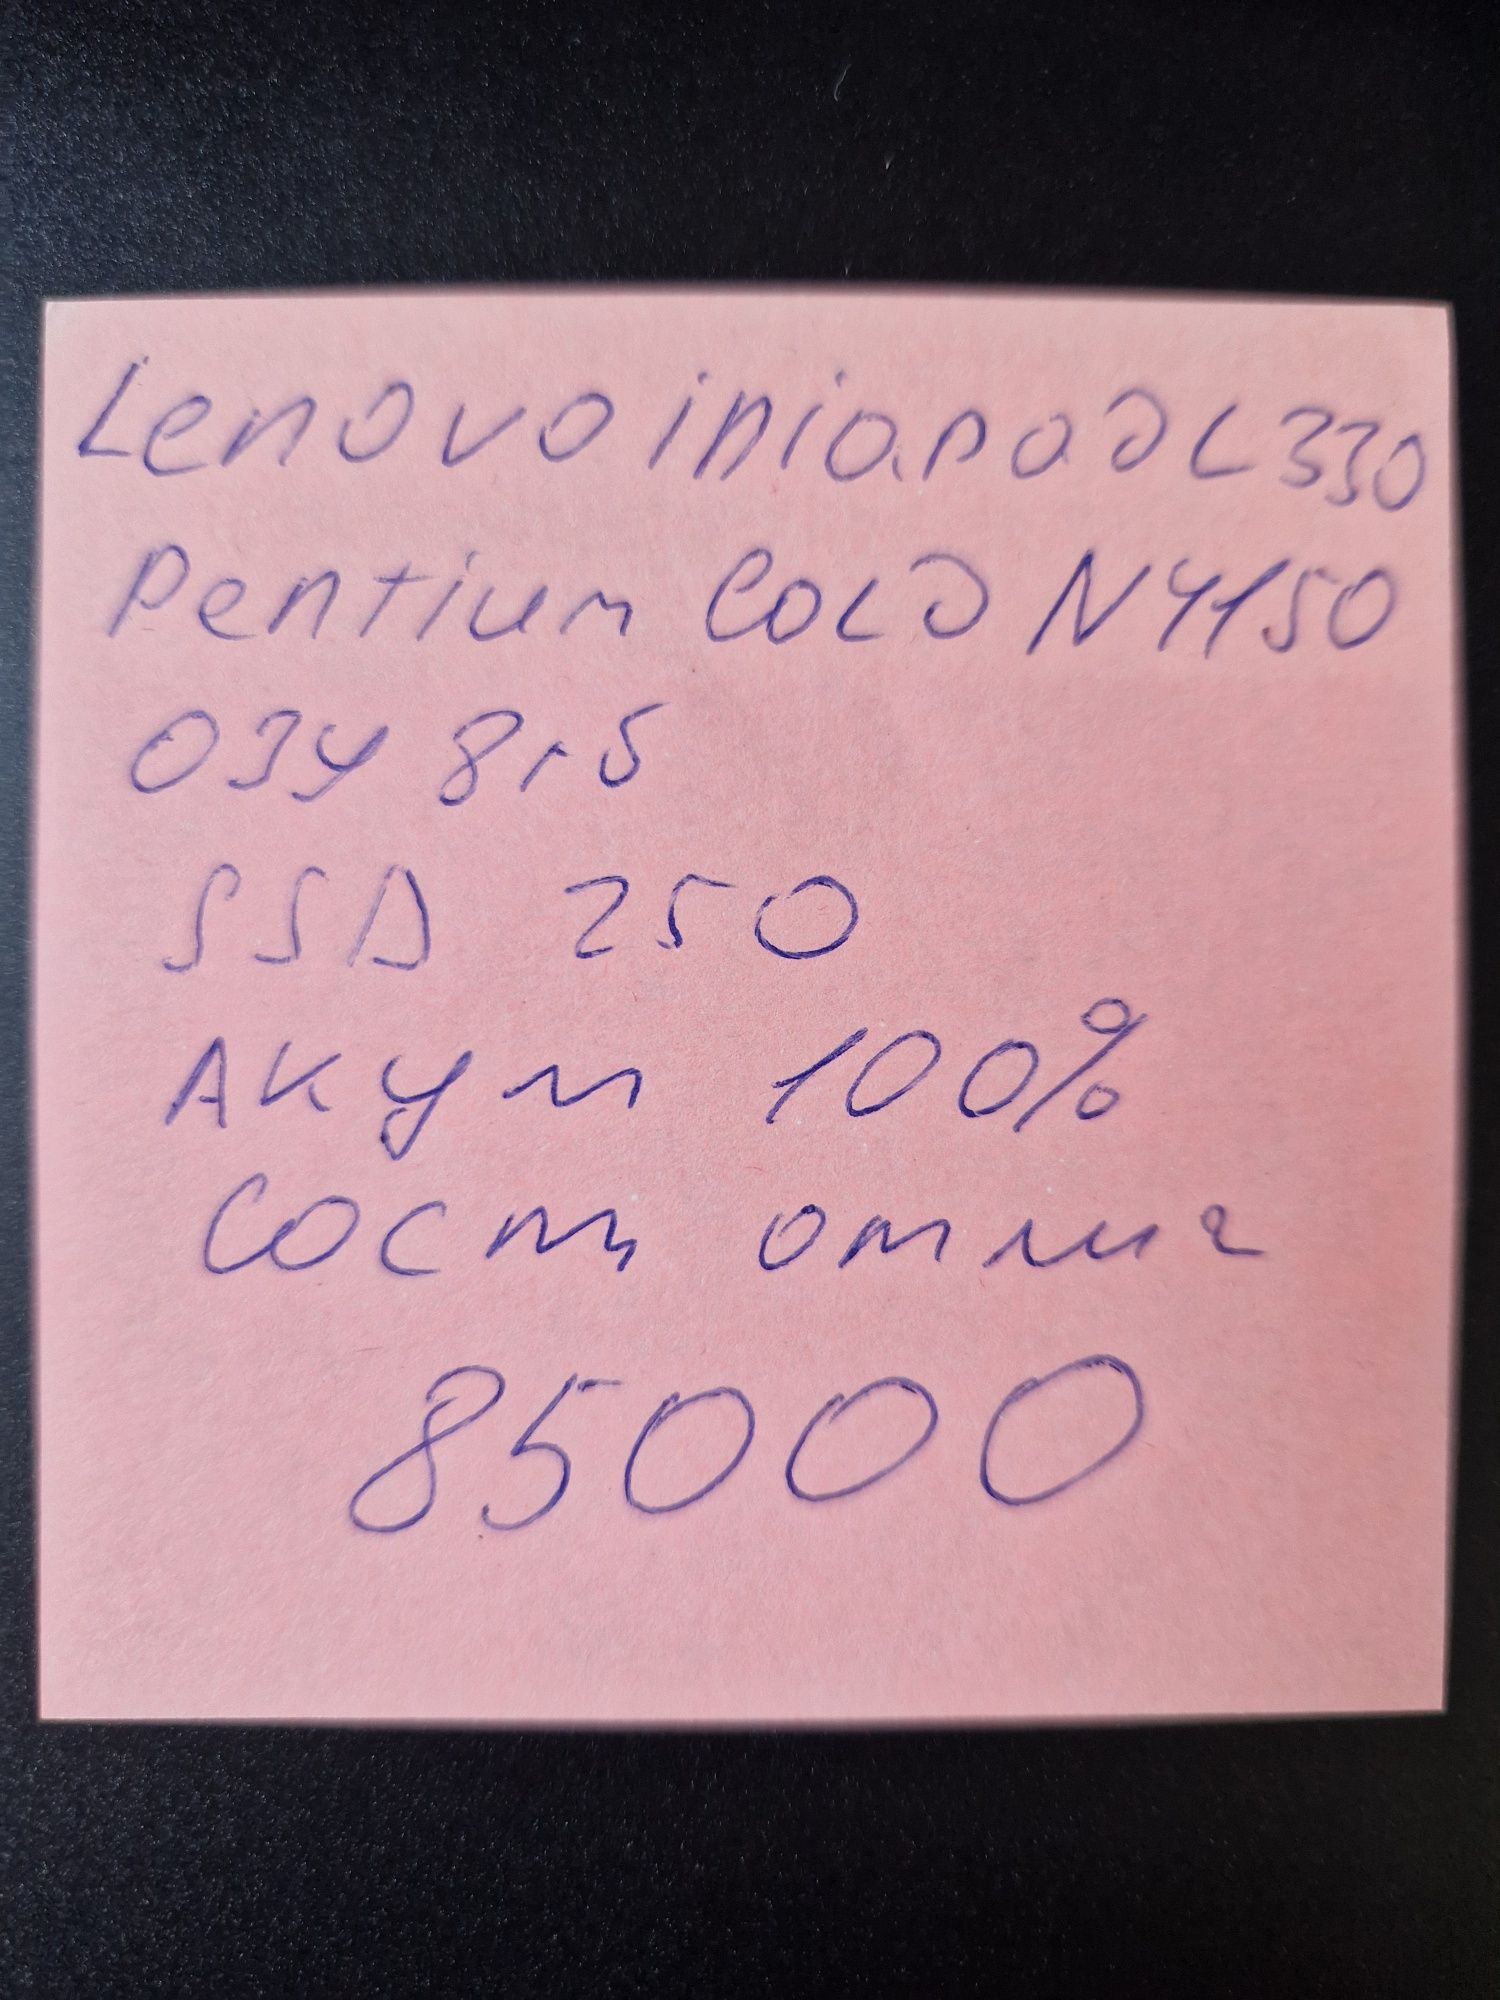 Lenovo iniapad L330
Pentium Gold N4150
ОЗУ 8гб
SSD 250
Акум 100%
Сост отлич
85000